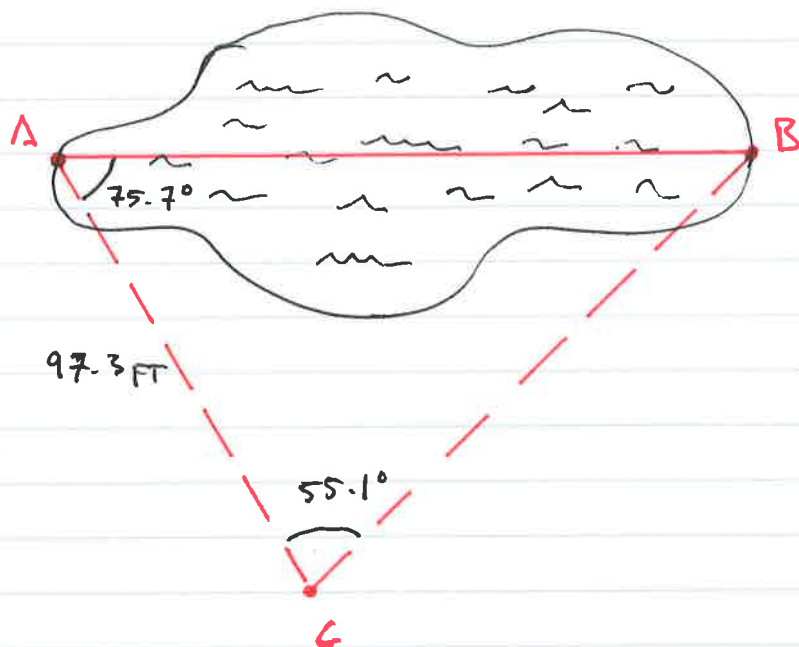 A
B
75.7°
97.3 FT
55.1°
C